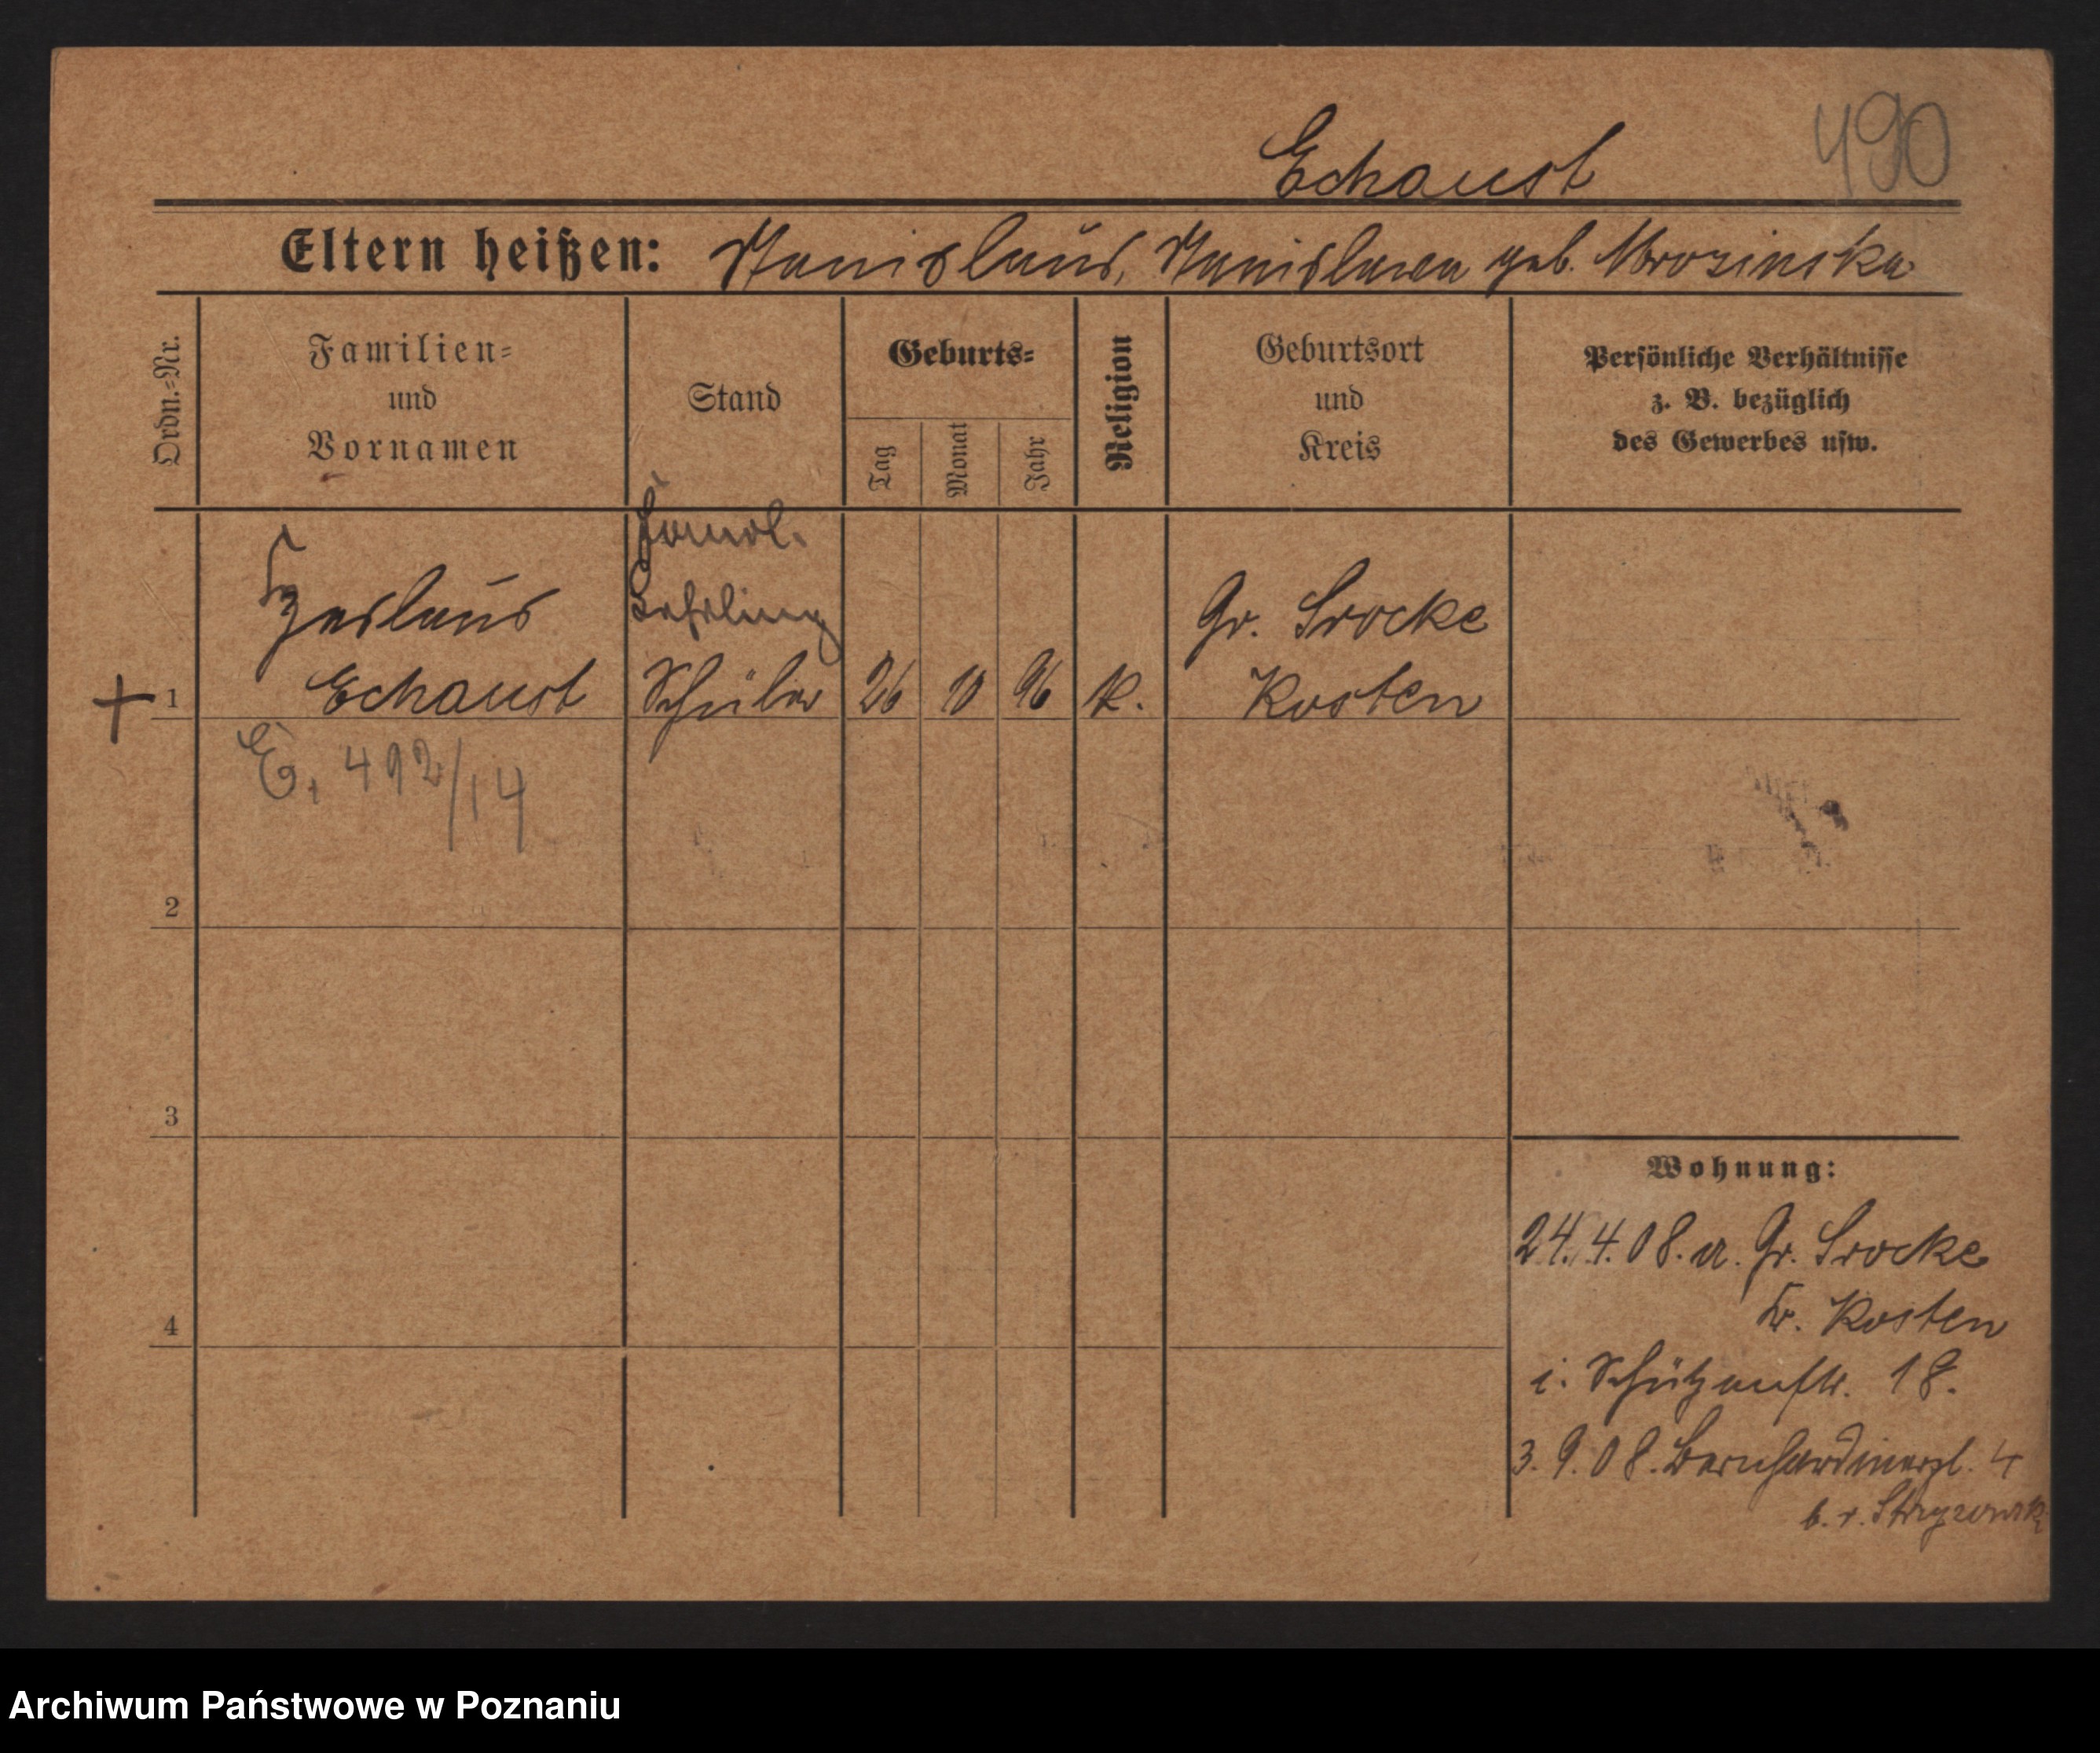 490
Echaust
Eltern heißen: Stanislaus, Stanislawa geb. Mrozinska
Ordn.-Nr.
Familien-
und
Vornamen
Stand
Geburts-
Tag
Monat
Jahr
Religion
Geburtsort
und
Kreis
Persönliche Verhältnisse
z. B. bezüglich
des Gewerbes usw.
Lehrling
Gr. Srocke
+ 1 Echaust Schüler 26 10 96 k. Kosten
E. 492/14
2
3
4
Wohnung:
24.4.08. a. Gr. Srocke
Kr. Kosten
i. Schützenstr. 18.
3.9.08. Bernhardinerpl. 4
b. v.
Archiwum Państwowe w Poznaniu